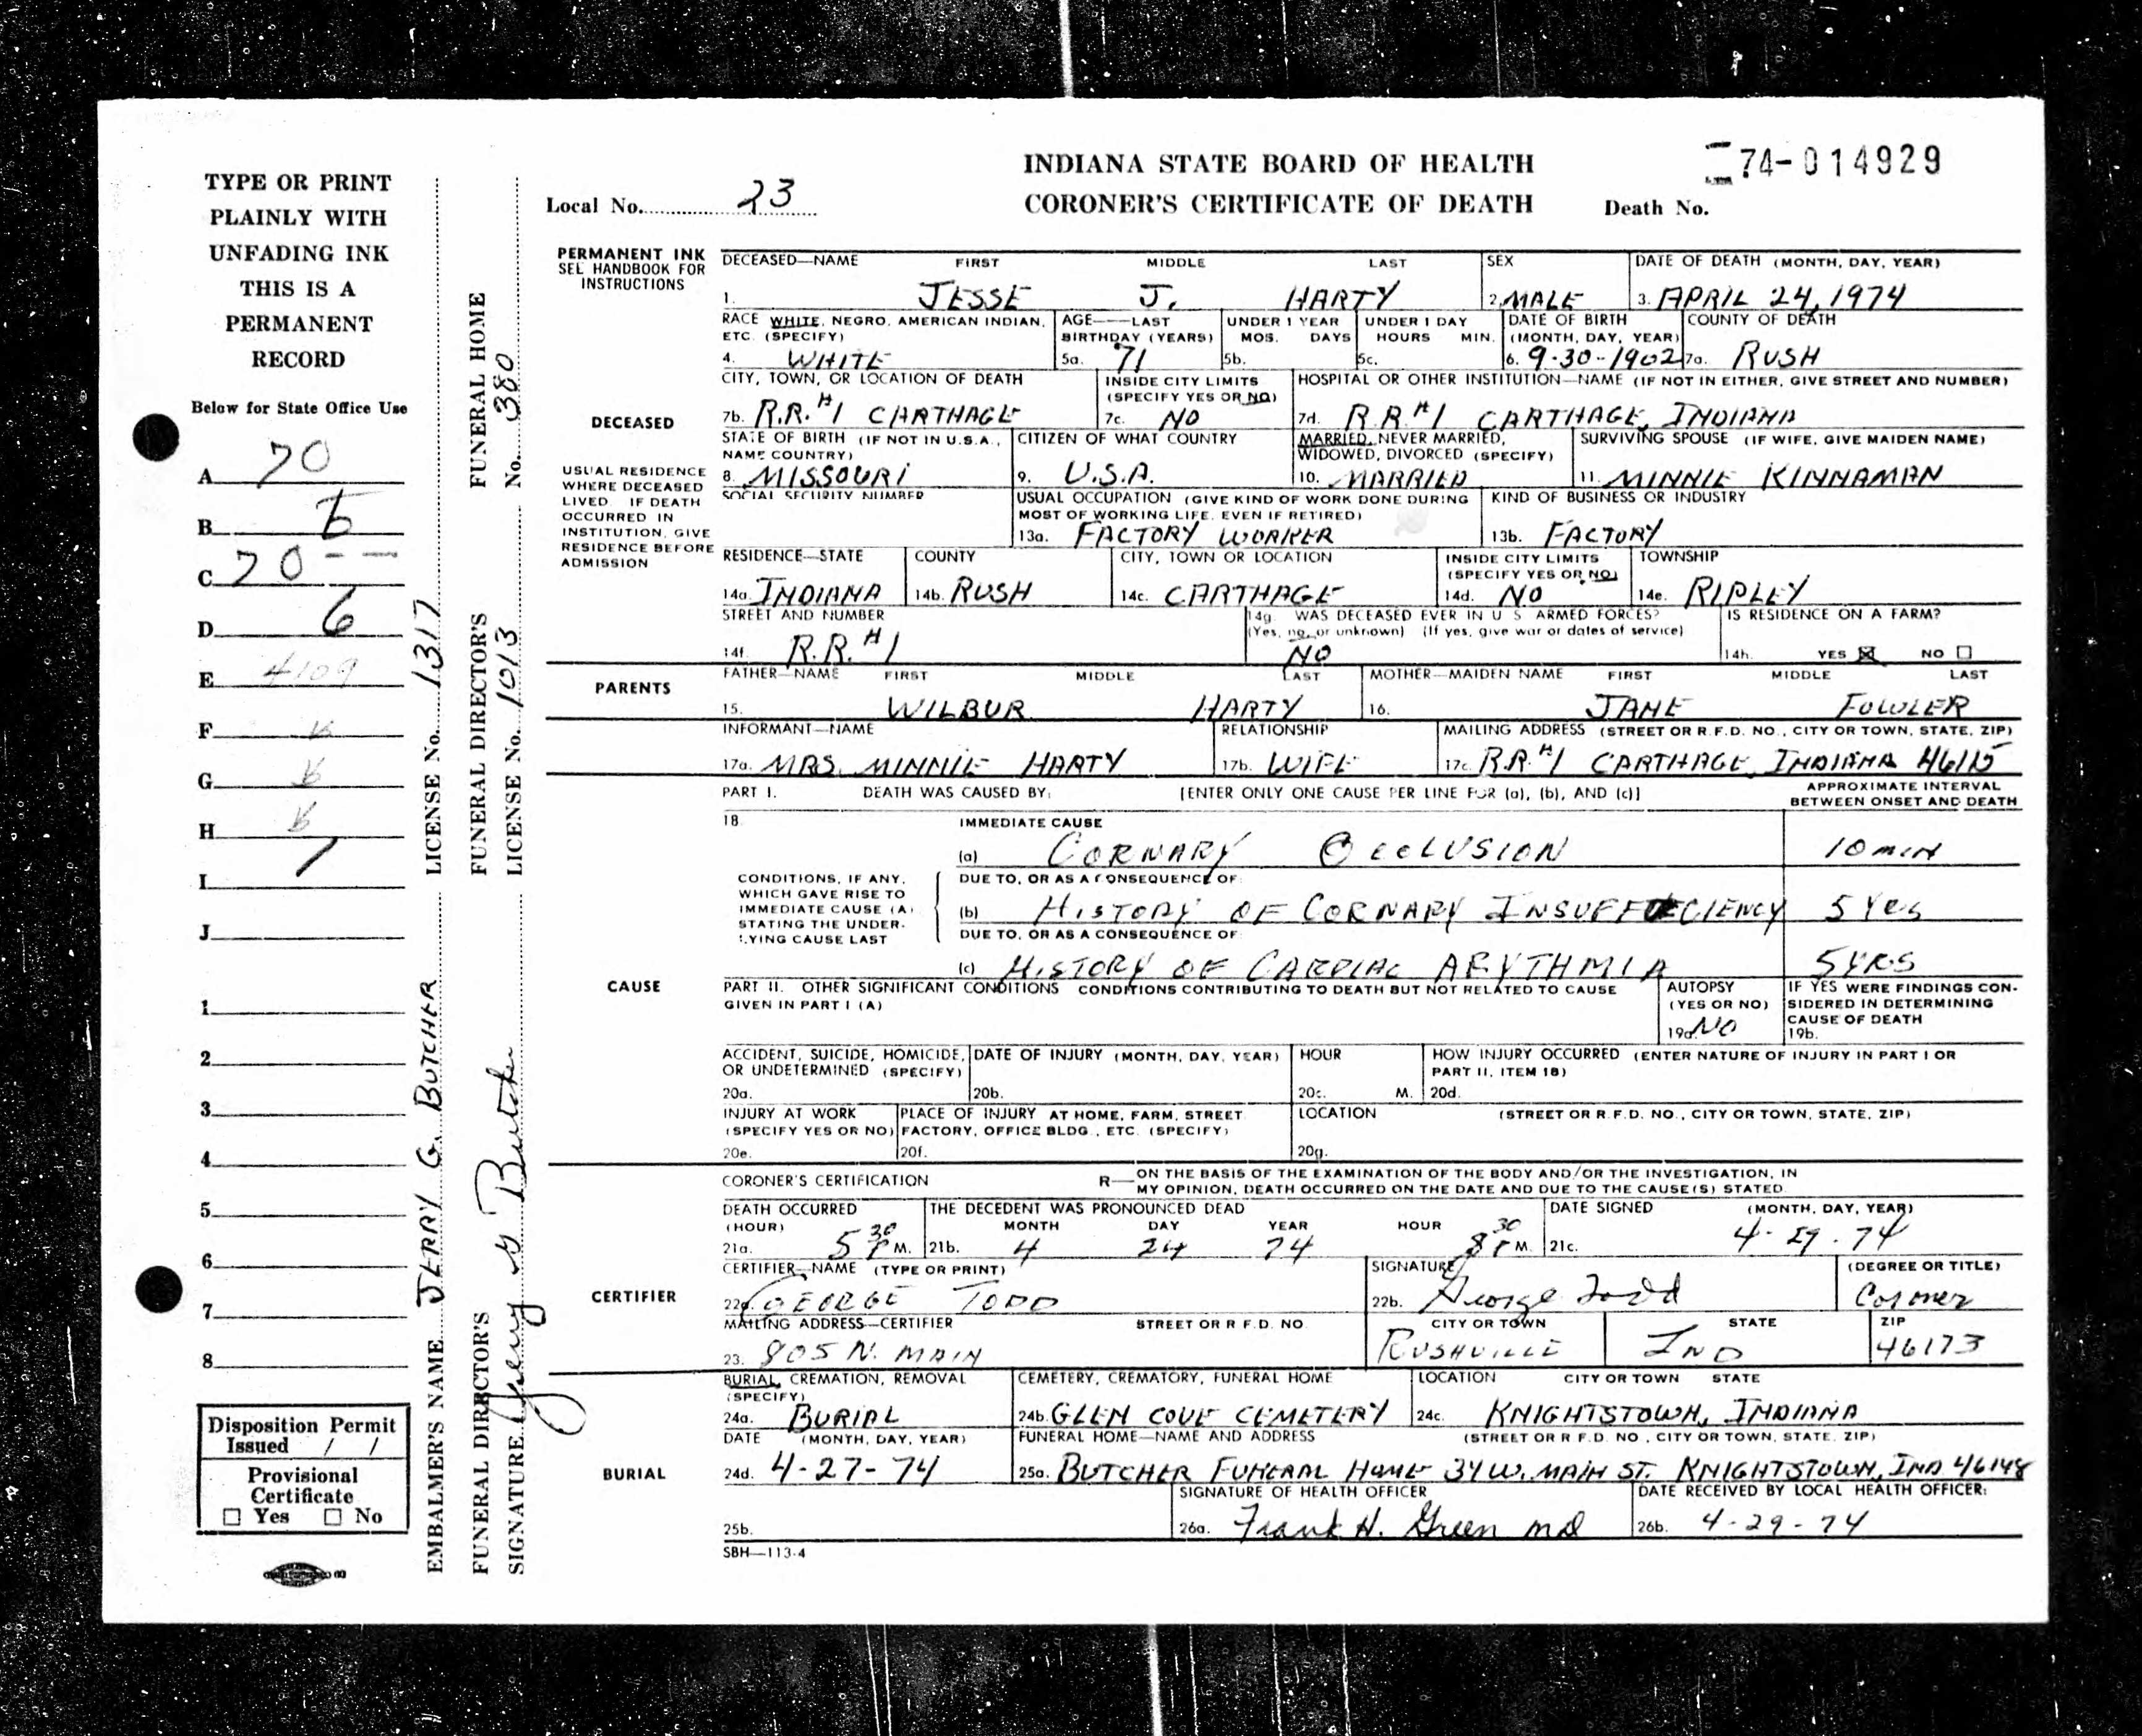 INDIANA STATE BOARD OF HEALTH
CORONER'S CERTIFICATE OF DEATH
Local No. 23
Death No. 74-014929
TYPE OR PRINT
PLAINLY WITH
UNFADING INK
THIS IS A
PERMANENT
RECORD
Below for State Office Use
A 70
B
C 70 - -
D 6
E 4109
F
G
H
I 1
J
1
2
3
4
5
6
7
8
Disposition Permit
Issued / /
Provisional
Certificate
☐ Yes ☐ No
EMBALMER'S NAME JERRY G. BUTCHER LICENSE No. 1317
FUNERAL DIRECTOR'S SIGNATURE Jerry G Butcher
FUNERAL DIRECTOR'S LICENSE No. 1013
FUNERAL HOME No. 380
PERMANENT INK
SEE HANDBOOK FOR
INSTRUCTIONS
DECEASED—NAME FIRST MIDDLE LAST SEX DATE OF DEATH (MONTH, DAY, YEAR)
1. JESSE J. HARTY 2. MALE 3. APRIL 24, 1974
RACE WHITE, NEGRO, AMERICAN INDIAN, AGE—LAST UNDER 1 YEAR UNDER 1 DAY DATE OF BIRTH COUNTY OF DEATH
ETC. (SPECIFY) BIRTHDAY (YEARS) MOS. DAYS HOURS MIN. (MONTH, DAY, YEAR)
4. WHITE 5a. 71 5b. 5c. 6. 9-30-1902 7a. RUSH
CITY, TOWN, OR LOCATION OF DEATH INSIDE CITY LIMITS HOSPITAL OR OTHER INSTITUTION—NAME (IF NOT IN EITHER, GIVE STREET AND NUMBER)
(SPECIFY YES OR NO)
DECEASED
7b. R.R.#1 CARTHAGE 7c. NO 7d. R R #1 CARTHAGE, INDIANA
STATE OF BIRTH (IF NOT IN U.S.A., CITIZEN OF WHAT COUNTRY MARRIED, NEVER MARRIED, SURVIVING SPOUSE (IF WIFE, GIVE MAIDEN NAME)
NAME COUNTRY) WIDOWED, DIVORCED (SPECIFY)
8. MISSOURI 9. U.S.A. 10. MARRIED 11. MINNIE KINNAMAN
USUAL RESIDENCE
WHERE DECEASED
LIVED IF DEATH
OCCURRED IN
INSTITUTION, GIVE
RESIDENCE BEFORE
ADMISSION
SOCIAL SECURITY NUMBER USUAL OCCUPATION (GIVE KIND OF WORK DONE DURING KIND OF BUSINESS OR INDUSTRY
MOST OF WORKING LIFE, EVEN IF RETIRED)
13a. FACTORY WORKER 13b. FACTORY
RESIDENCE—STATE COUNTY CITY, TOWN OR LOCATION INSIDE CITY LIMITS TOWNSHIP
(SPECIFY YES OR NO)
14a. INDIANA 14b. RUSH 14c. CARTHAGE 14d. NO 14e. RIPLEY
STREET AND NUMBER 14g. WAS DECEASED EVER IN U S ARMED FORCES? IS RESIDENCE ON A FARM?
(Yes, no, or unknown) (If yes, give war or dates of service)
14f. R.R.#1 NO 14h. YES ☒ NO ☐
PARENTS
FATHER—NAME FIRST MIDDLE LAST MOTHER—MAIDEN NAME FIRST MIDDLE LAST
15. WILBUR HARTY 16. JANE FOWLER
INFORMANT—NAME RELATIONSHIP MAILING ADDRESS (STREET OR R.F.D. NO., CITY OR TOWN, STATE, ZIP)
17a. MRS. MINNIE HARTY 17b. WIFE 17c. R.R.#1 CARTHAGE, INDIANA 46115
PART I. DEATH WAS CAUSED BY: [ENTER ONLY ONE CAUSE PER LINE FOR (a), (b), AND (c)] APPROXIMATE INTERVAL
BETWEEN ONSET AND DEATH
18 IMMEDIATE CAUSE
(a) CORNARY OCCLUSION 10 min
CONDITIONS, IF ANY,
WHICH GAVE RISE TO
IMMEDIATE CAUSE (A)
STATING THE UNDER-
LYING CAUSE LAST
DUE TO, OR AS A CONSEQUENCE OF:
(b) HISTORY OF CORNARY INSUFFECIENCY 5 YRS
DUE TO, OR AS A CONSEQUENCE OF:
(c) HISTORY OF CARDIAC ARYTHMIA 5 YRS
CAUSE
PART II. OTHER SIGNIFICANT CONDITIONS CONDITIONS CONTRIBUTING TO DEATH BUT NOT RELATED TO CAUSE
GIVEN IN PART I (A)
AUTOPSY
(YES OR NO)
19a. NO
IF YES WERE FINDINGS CON-
SIDERED IN DETERMINING
CAUSE OF DEATH
19b.
ACCIDENT, SUICIDE, HOMICIDE, DATE OF INJURY (MONTH, DAY, YEAR) HOUR HOW INJURY OCCURRED (ENTER NATURE OF INJURY IN PART I OR
OR UNDETERMINED (SPECIFY) PART II, ITEM 18)
20a. 20b. 20c. M. 20d.
INJURY AT WORK PLACE OF INJURY AT HOME, FARM, STREET LOCATION (STREET OR R.F.D. NO., CITY OR TOWN, STATE, ZIP)
(SPECIFY YES OR NO) FACTORY, OFFICE BLDG., ETC. (SPECIFY)
20e. 20f. 20g.
CORONER'S CERTIFICATION R— ON THE BASIS OF THE EXAMINATION OF THE BODY AND/OR THE INVESTIGATION, IN
MY OPINION, DEATH OCCURRED ON THE DATE AND DUE TO THE CAUSE(S) STATED
DEATH OCCURRED THE DECEDENT WAS PRONOUNCED DEAD DATE SIGNED (MONTH, DAY, YEAR)
(HOUR) MONTH DAY YEAR HOUR
21a. 5 30 P M. 21b. 4 24 74 8 30 P M. 21c. 4-29-74
CERTIFIER
CERTIFIER—NAME (TYPE OR PRINT) SIGNATURE (DEGREE OR TITLE)
22a. GEORGE TODD 22b. George Todd Coroner
MAILING ADDRESS—CERTIFIER STREET OR R.F.D. NO. CITY OR TOWN STATE ZIP
23. 805 N. MAIN RUSHVILLE IND 46173
BURIAL, CREMATION, REMOVAL CEMETERY, CREMATORY, FUNERAL HOME LOCATION CITY OR TOWN STATE
(SPECIFY)
24a. BURIAL 24b. GLEN COVE CEMETERY 24c. KNIGHTSTOWN, INDIANA
BURIAL
DATE (MONTH, DAY, YEAR) FUNERAL HOME—NAME AND ADDRESS (STREET OR R.F.D. NO., CITY OR TOWN, STATE, ZIP)
24d. 4-27-74 25a. BUTCHER FUNERAL HOME 34 W. MAIN ST. KNIGHTSTOWN, IND 46148
SIGNATURE OF HEALTH OFFICER DATE RECEIVED BY LOCAL HEALTH OFFICER:
25b. 26a. Frank H. Green MD 26b. 4-29-74
SBH—113-4